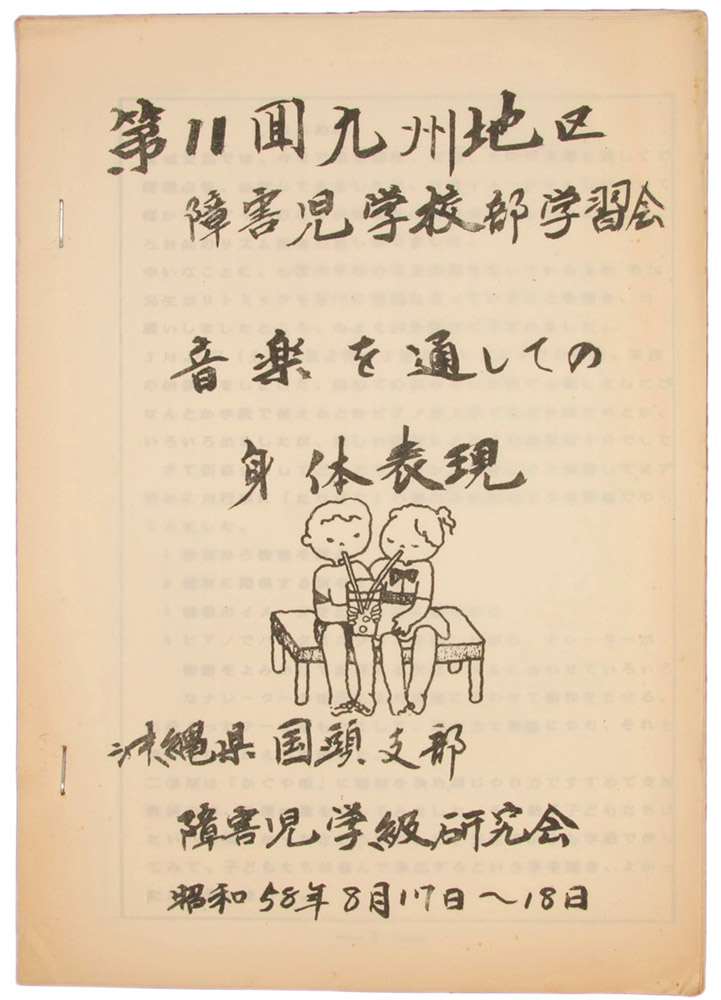 第11回九州地区
障害児学校部学習会
音楽を通しての
身体表現
沖縄県国頭支部
障害児学級研究会
昭和58年8月17日～18日